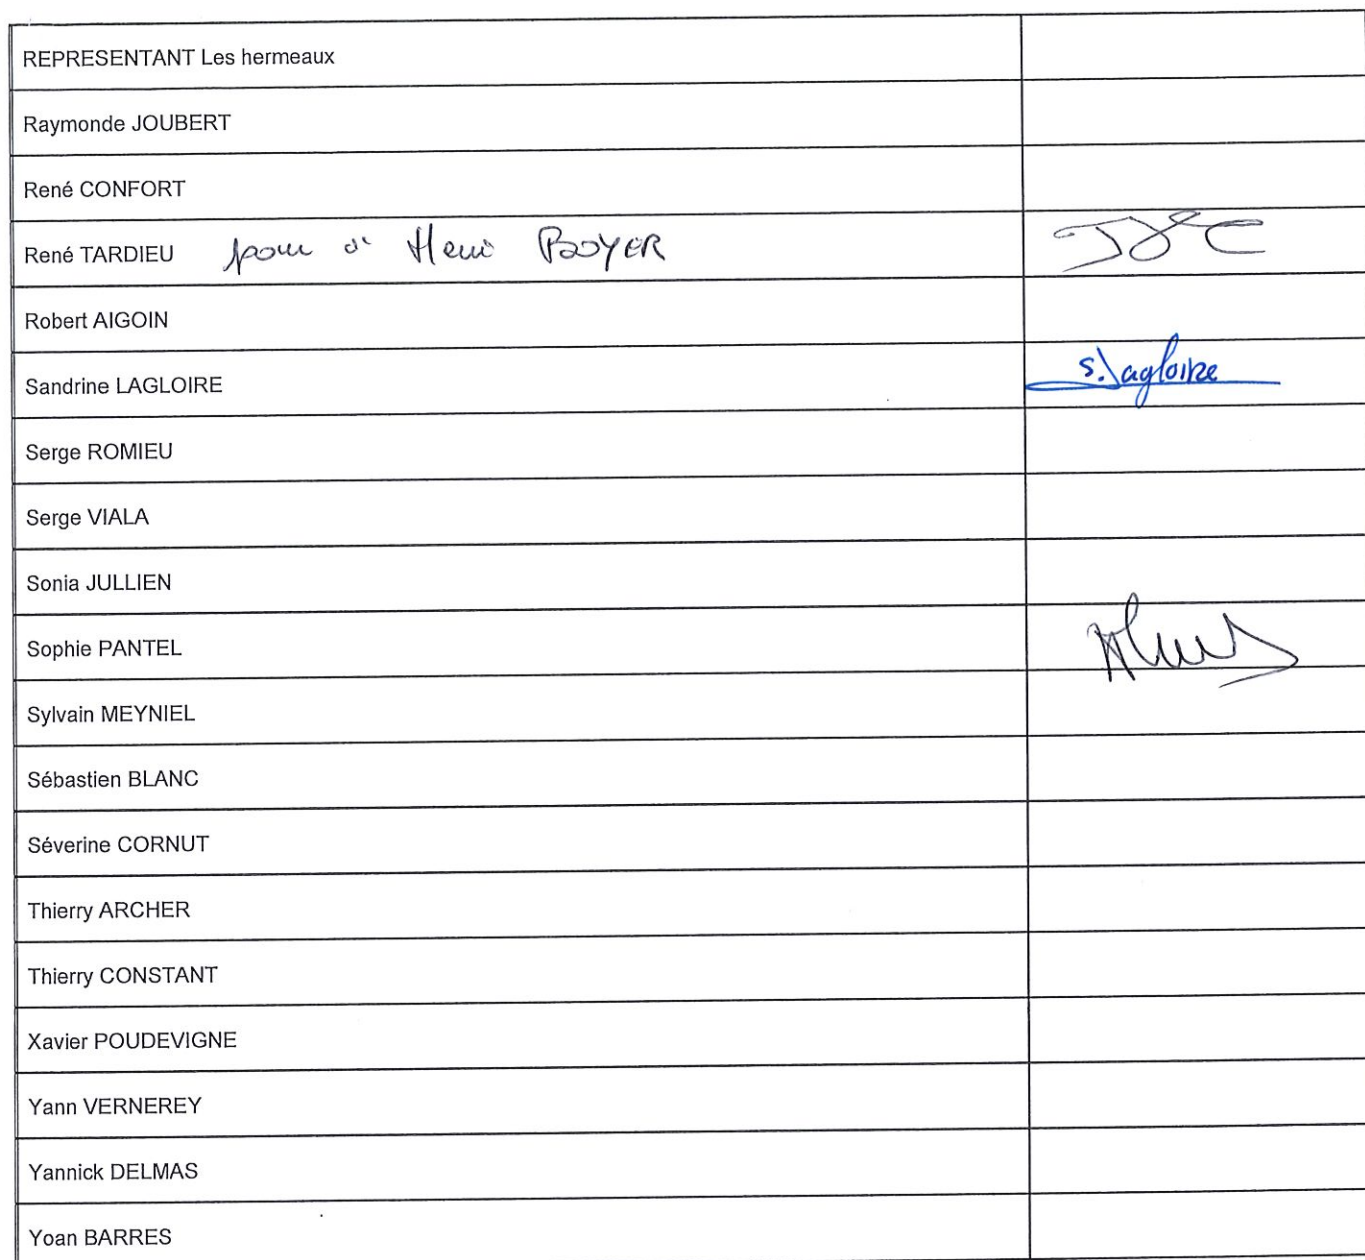 REPRESENTANT Les hermeaux
Raymonde JOUBERT
René CONFORT
René TARDIEU pour à Henri BOYER
Robert AIGOIN
Sandrine LAGLOIRE S. Lagloire
Serge ROMIEU
Serge VIALA
Sonia JULLIEN
Sophie PANTEL
Sylvain MEYNIEL
Sébastien BLANC
Séverine CORNUT
Thierry ARCHER
Thierry CONSTANT
Xavier POUDEVIGNE
Yann VERNEREY
Yannick DELMAS
Yoan BARRES